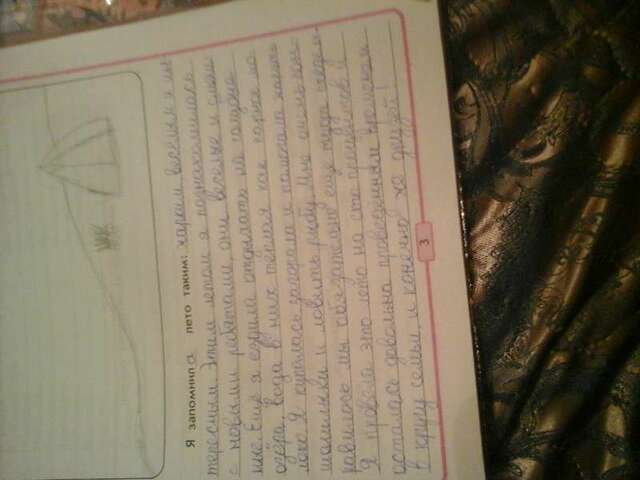 Я запомнила лето таким: жарким, весёлым и ин-
тересным. Этим летом я познакомилась
с новыми ребятами, они весёлые и смеш-
ные. Ещё я ездила отдыхать на
озёра, вода в них тёплая как парное мо-
локо. Я купалась, загорала и помогала жарить
шашлыки и ловить рыбу. Мне очень пон-
равилось мы обязательно ещё туда съезди-
Я провела это лето на сто процентов и
осталась довольна проведённым временем
в кругу семьи, и конечно же друзей!
3